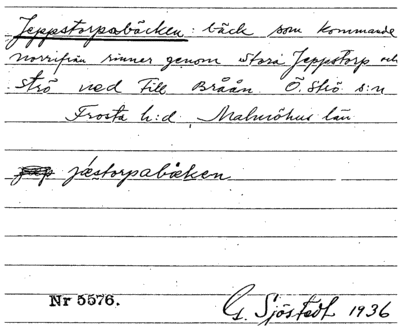 Jeppstorpabäcken: bäck som kommande
norrifrån rinner genom Stora Jeppstorp och
Strö ned till Bråån Ö. Strö s:n
Frosta h:d, Malmöhus län
jästorpabäcken
Nr 5576. G. Sjöstedt 1936